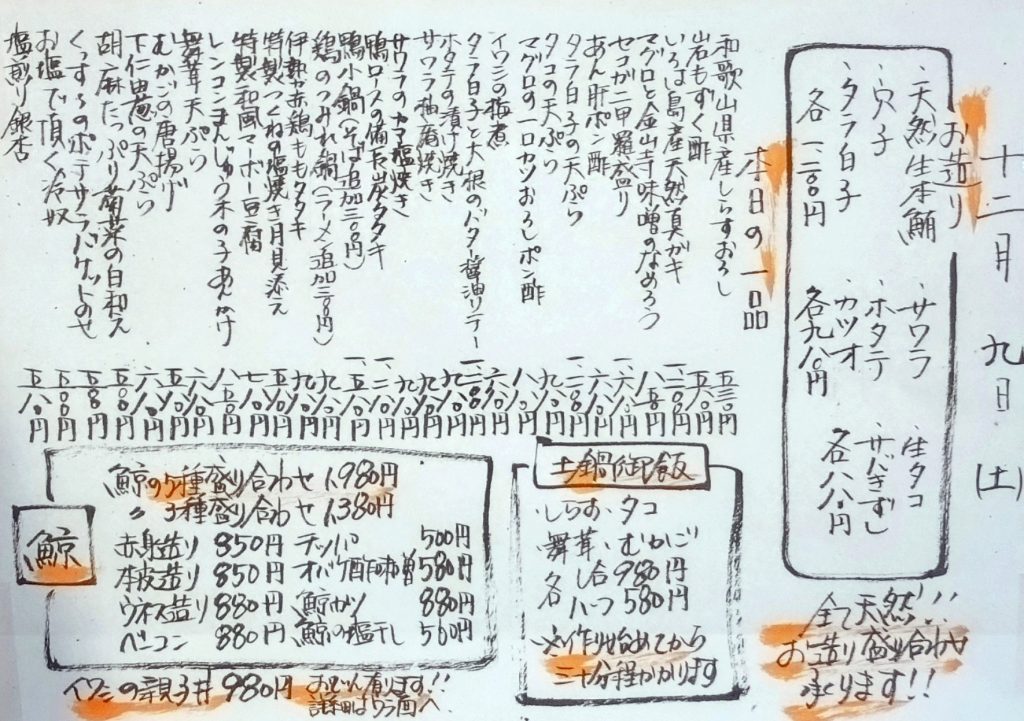 十二月 九日 (土)
お造り
・天然生本鮪
・穴子
・タラ白子
各一二〇〇円
・サワラ
・ホタテ
・カツオ
各九八〇円
・生タコ
・サバきずし
各八八〇円
全て天然!!
お造り盛り合わせ
承ります!!
本日の一品
和歌山県産しらすおろし 五三〇円
岩もずく酢 五五〇円
いろは島産天然真ガキ 一二〇〇円
マグロと金山寺味噌のなめろう 八五〇円
セコガニ甲羅盛り 一六八〇円
あん肝ポン酢 六八〇円
タラ白子の天ぷら 一二八〇円
タコの天ぷら 九八〇円
マグロの一口カツおろしポン酢 八八〇円
イワシの梅煮 六八〇円
タラ白子と大根のバター醤油ソテー 一二八〇円
ホタテの漬け焼き 九八〇円
サワラ柚庵焼き 九八〇円
サワラのカマ塩焼き 九八〇円
鴨ロースの備長炭タタキ 一二八〇円
鴨小鍋(そば追加三〇〇円)
鶏のつみれ鍋(ラーメン追加三〇〇円)
伊勢赤鶏ももタタキ
特製つくねの塩焼き月見添え
特製和風マーボー豆腐
レンコンまんじゅうキノ子あんかけ
舞茸天ぷら
むかごの唐揚げ
下仁田葱の天ぷら
胡麻たっぷり菊菜の白和え
くっすーのポテサラバゲットのせ
お塩で頂く冷奴 五〇〇円
塩煎り銀杏 五八〇円
土鍋御飯
・しらす・タコ
舞茸・むかご
各 し合 980円
各 ハーフ 580円
※作り始めてから
三十分程かかります
鯨
鯨の5種盛り合わせ 1,980円
〃 3種盛り合わせ 1,380円
赤身造り 850円 テッパ 500円
本皮造り 850円 オバケ酢味噌 580円
ウネス造り 880円 鯨カツ 880円
ベーコン 880円 鯨の塩干し 500円
イワシの親子丼 980円
おでん有ります!!
詳細はウラ面へ